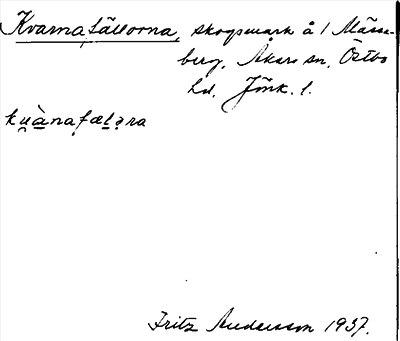 Kvarnafällorna, skogsmark å 1 Mässe-
berg, Åkers sn, Östbo
hd. Jönk. l.
kṷànafælǝra
Fritz Andersson 1937.